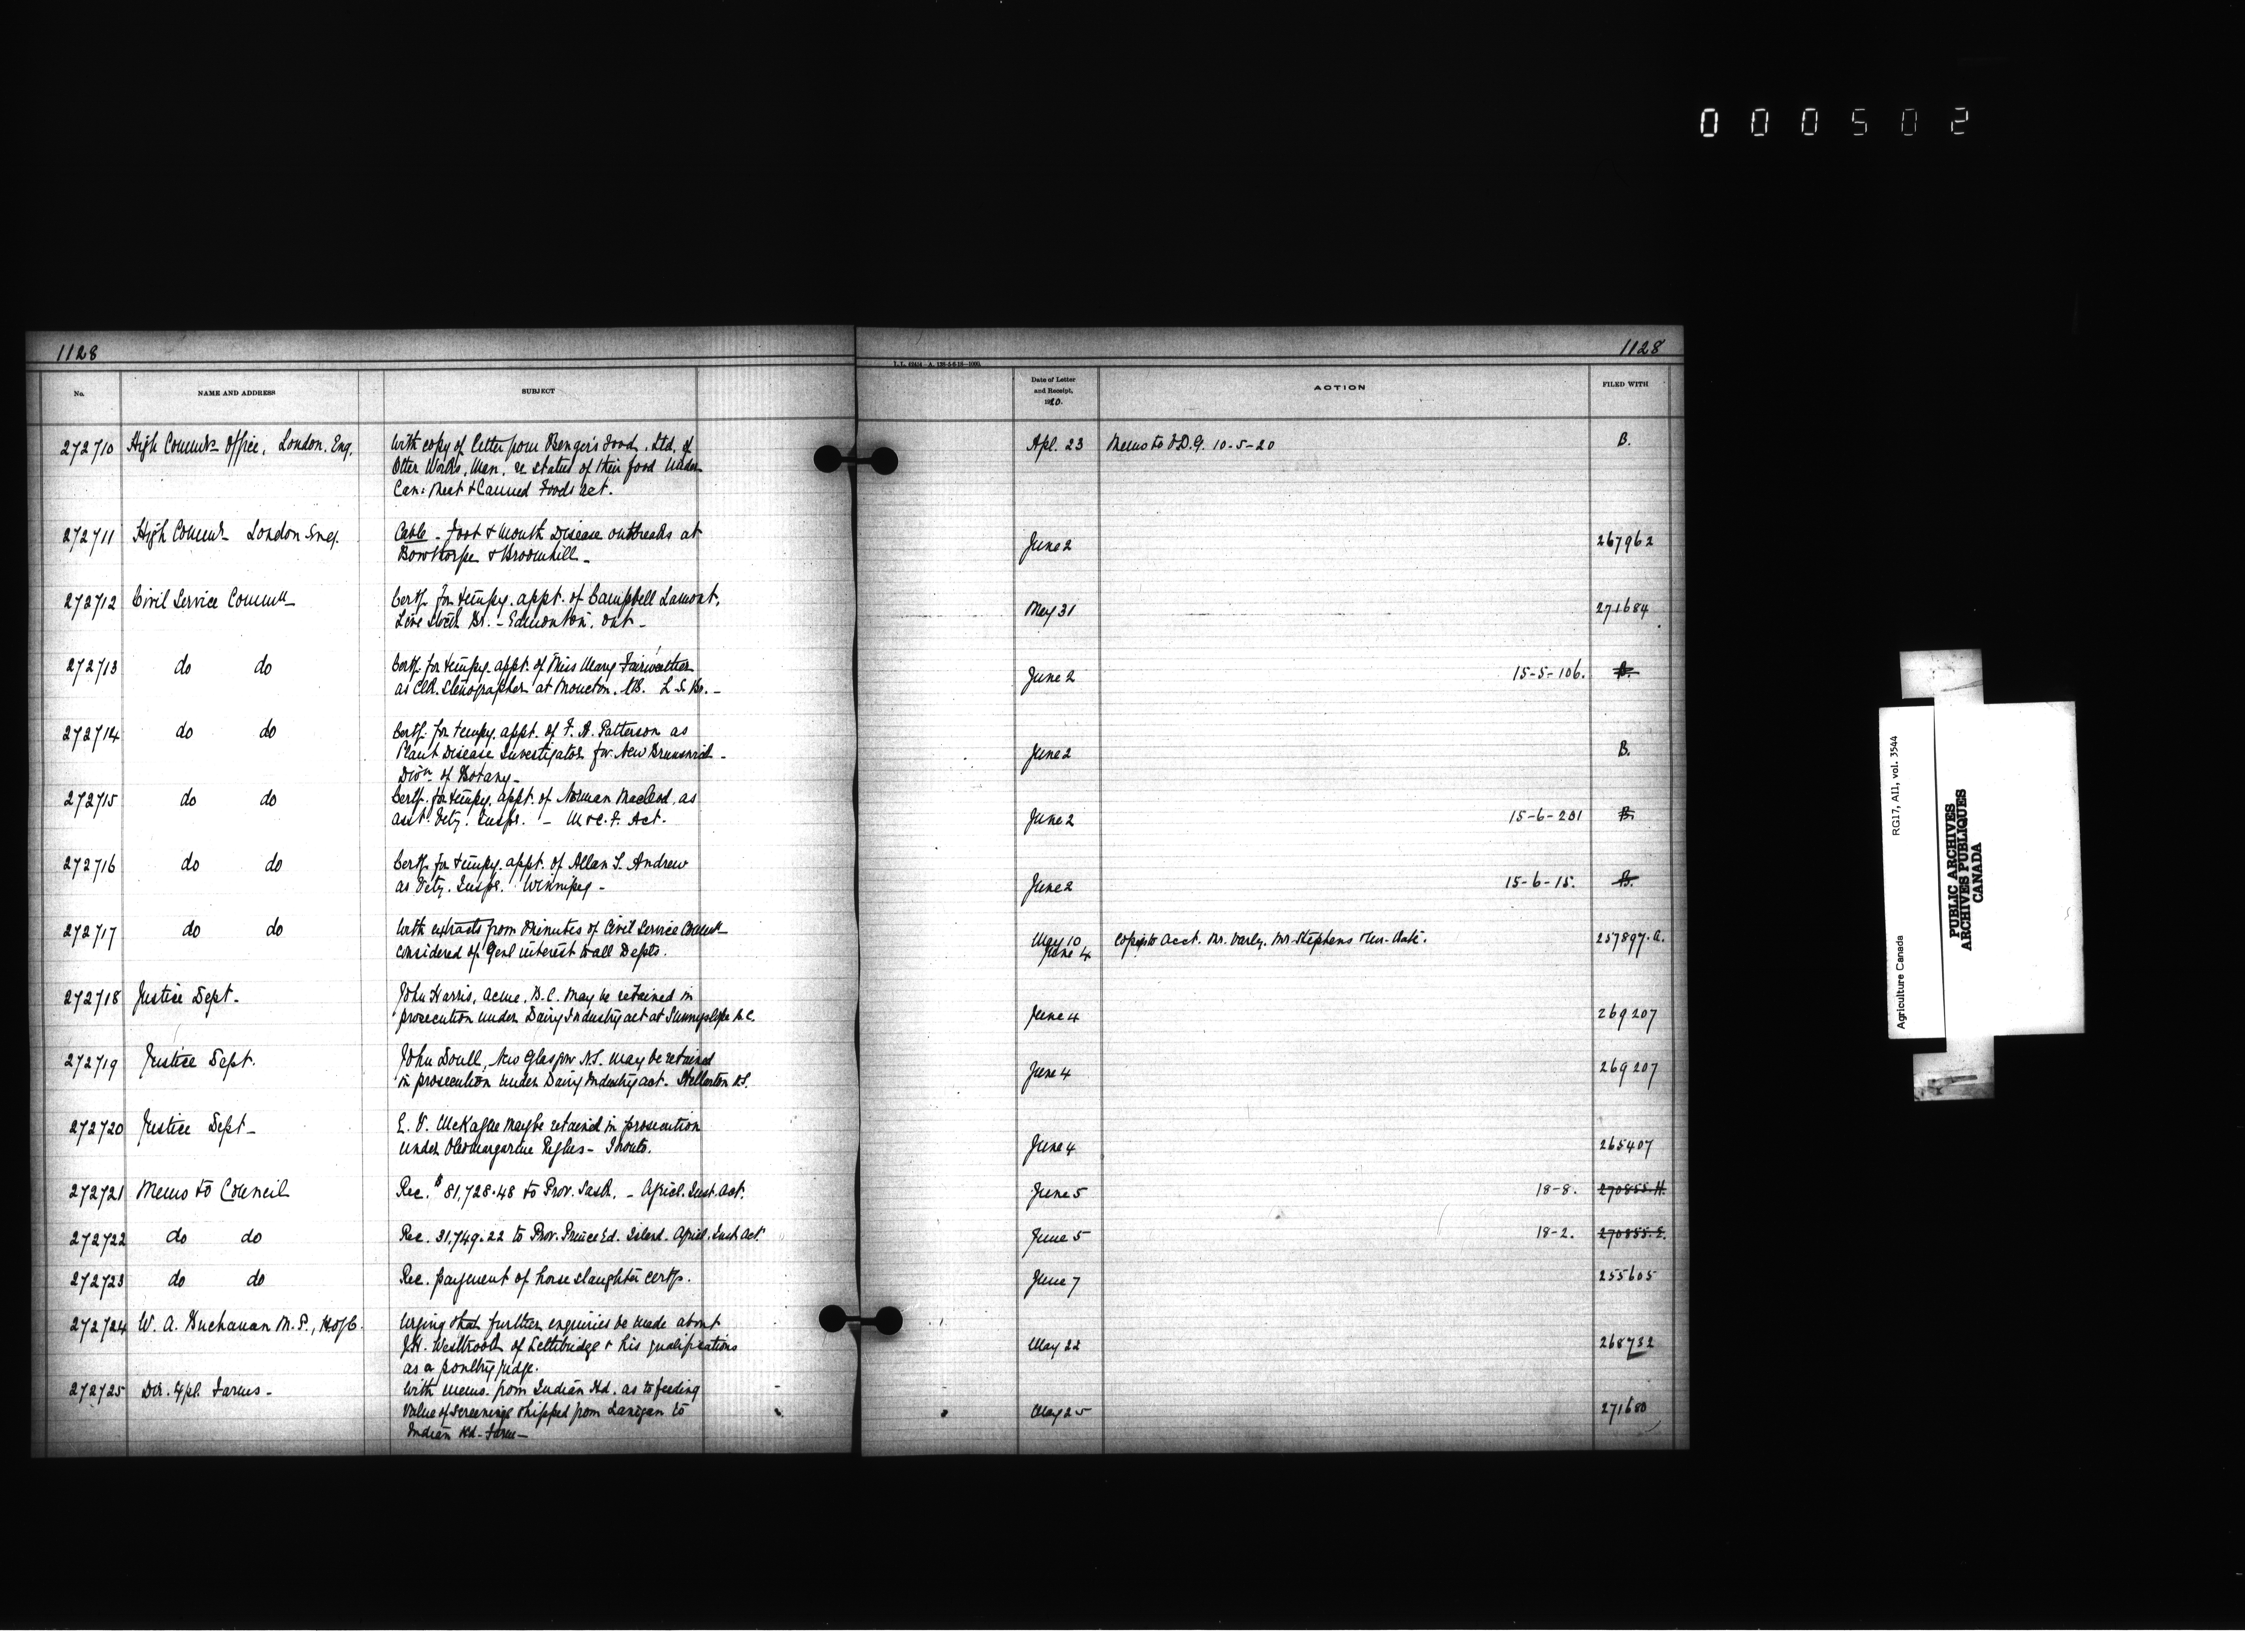 000502
1128
1128
No.
NAME AND ADDRESS
SUBJECT
Date of Letter
and Receipt,
1920.
ACTION
FILED WITH
272710 High Commr's Office, London, Eng. With copy of letter from Benger's Food, Ltd, of Apl. 23 Memo to V.D.G. 10-5-20 B.
Otter Works, Man. re status of their food under
Can: Meat & Canned Foods Act.
272711 High Commr London Eng. Cable - Foot & Mouth Disease outbreaks at June 2 267962
Bowthorpe & Broomhill -
272712 Civil Service Commn Certf. for tempy. appt. of Campbell Lamont, May 31 271684
Live Stock Br. - Edmonton, Ont -
272713 do do Certf. for tempy. appt. of Miss Mary Fairweather June 2 15-5-106. B.
as Clk. Stenographer at Moncton, N.B. L.S. Br. -
272714 do do Certf. for tempy. appt. of F. A. Patterson as June 2 B.
Plant Disease Investigator for New Brunswick -
Divn of Botany -
272715 do do Certf. for tempy. appt. of Norman MacLeod, as June 2 15-6-201 B.
asst. Vety. Inspr. - M & C. F. Act.
272716 do do Certf. for tempy. appt. of Allan S. Andrew June 2 15-6-15. B.
as Vety. Inspr. Winnipeg -
272717 do do With extracts from Minutes of Civil Service Commn May 10 Copies to Acct. Mr. Varly, Mr. Stephens 257897.A.
considered of Genl interest to all Depts. June 4
272718 Justice Dept - John Harris, Acme, B.C. may be retained in June 4 269207
prosecution under Dairy Industry act at Sunnyslope B.C.
272719 Justice Dept. John Doull, New Glasgow N.S. may be retained June 4 269207
in prosecution under Dairy Industry act. Stellarton N.S.
272720 Justice Dept - E. V. McKague may be retained in prosecution June 4 265407
under Oleomargarine Regtns - Toronto.
272721 Memo to Council Rec. $81,728.48 to Prov. Sask. - Agricl. Inst. Act. June 5 18-8. 270855.H.
272722 do do Rec. 31,749.22 to Prov. Prince Ed. Island. Agricl. Inst. Act June 5 18-2. 270855.E.
272723 do do Rec. payment of horse slaughter certfs. June 7 255605
272724 W. A. Buchanan M.P., H. of C. Urging that further enquiries be made about May 22 268732
J.H. Westbrook of Lethbridge & his qualifications
as a poultry judge.
272725 Dir. Expl. Farms - With memo. from Indian Hd. as to feeding May 25 271680
value of screenings shipped from Lanigan to
Indian Hd - Farm -
Agriculture Canada
RG17, AII, vol. 3544
PUBLIC ARCHIVES
ARCHIVES PUBLIQUES
CANADA